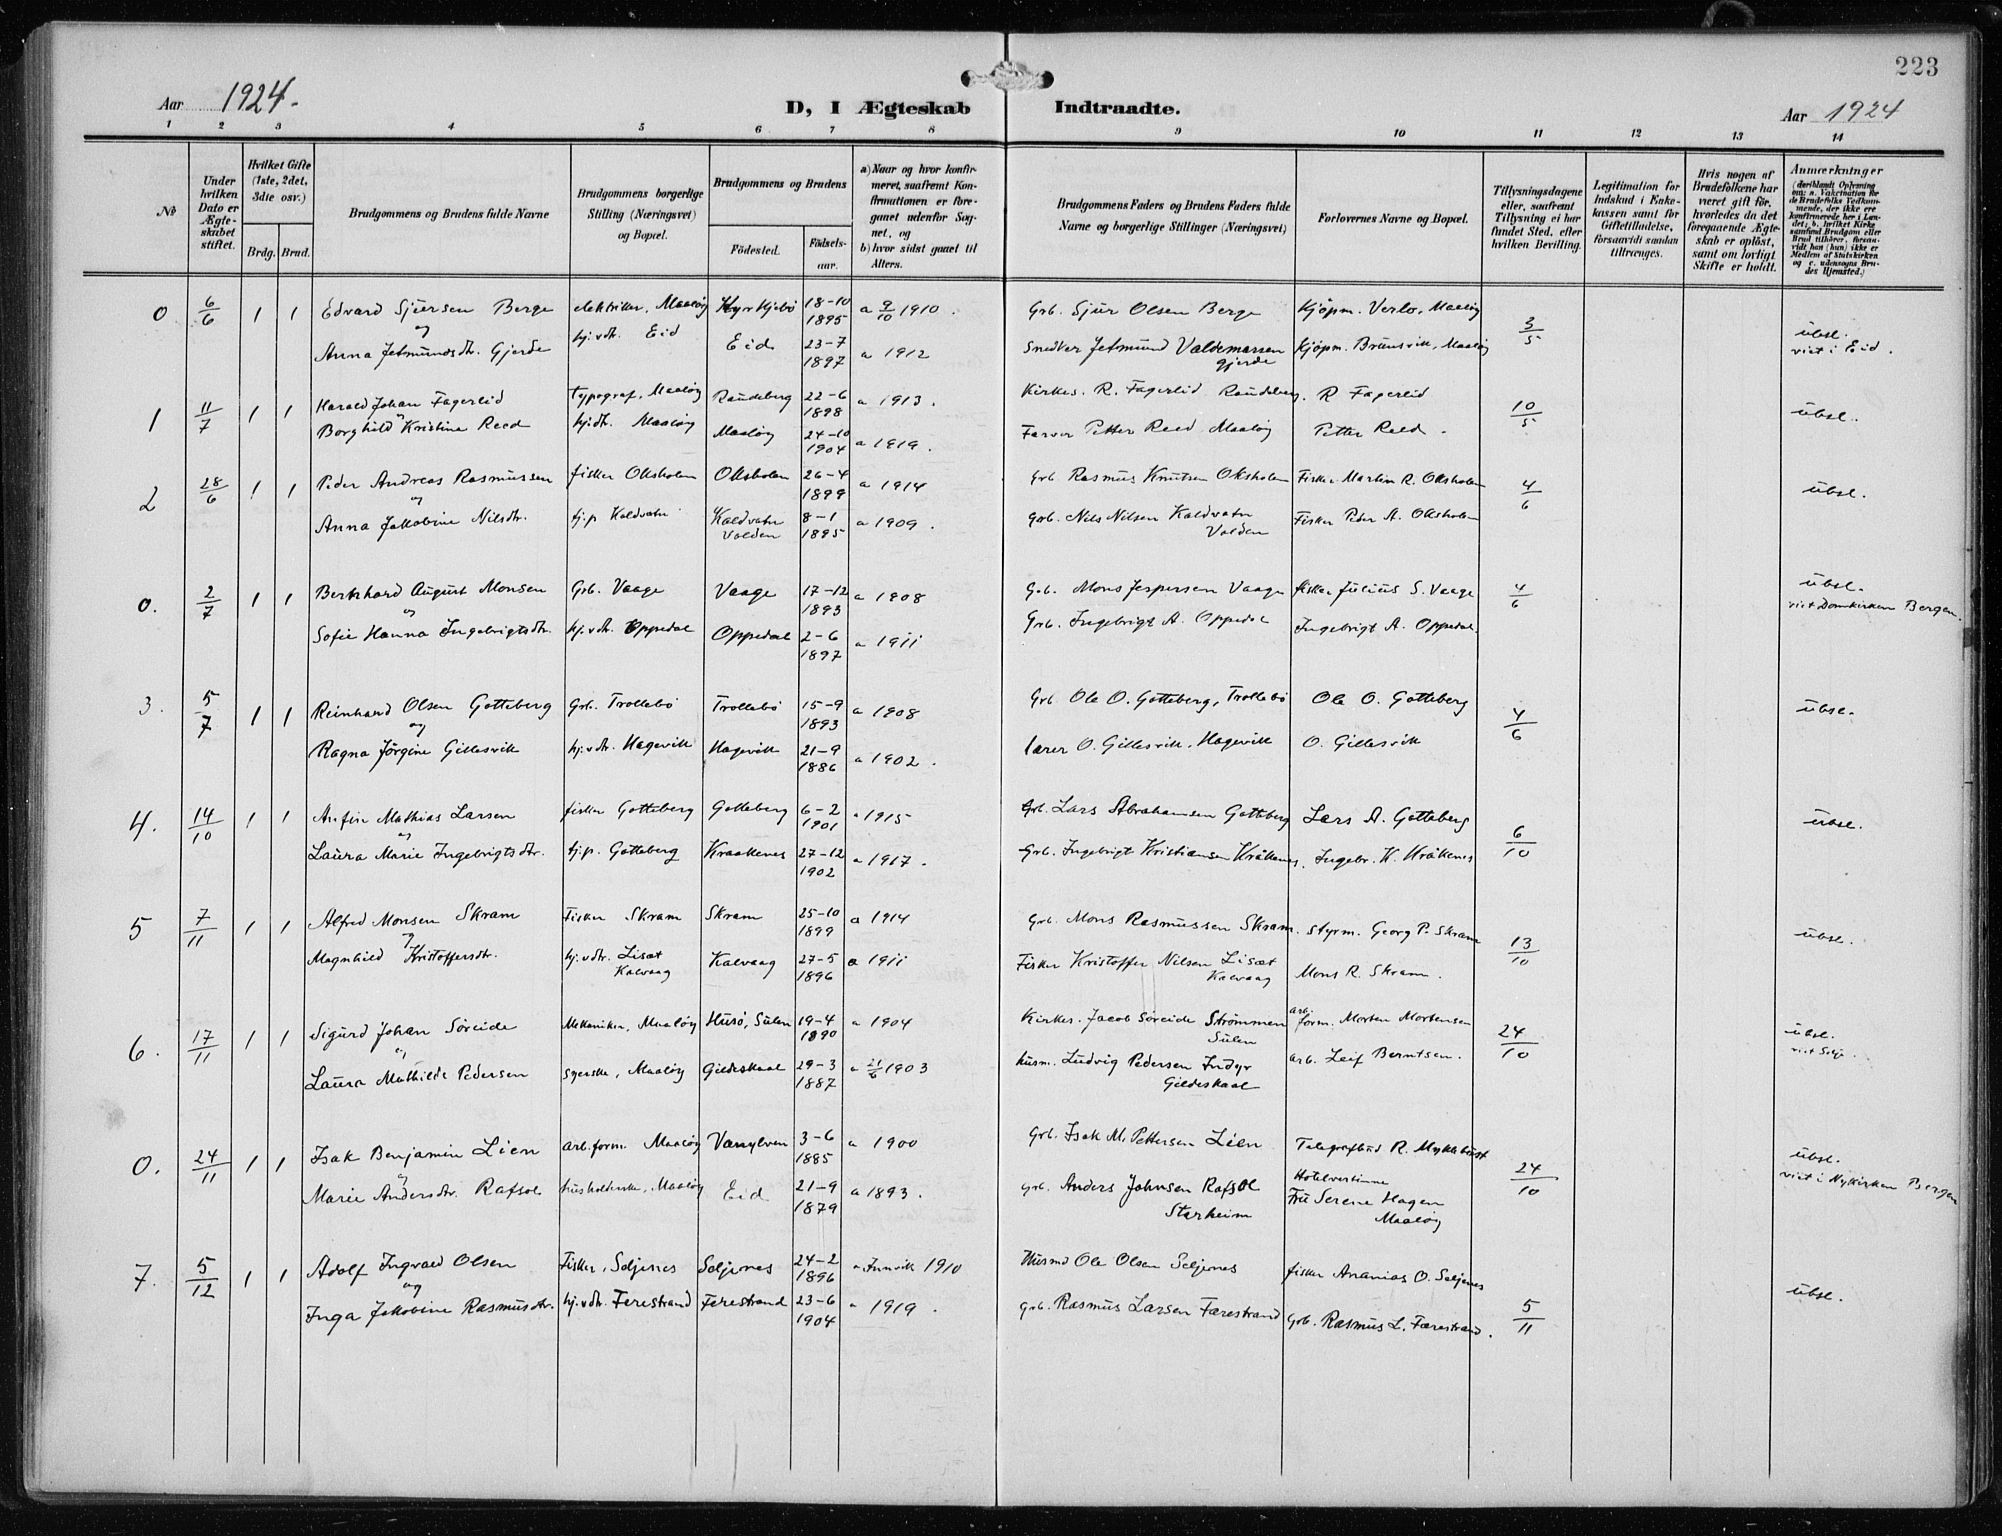 223
Aar 1924.
D, I Ægteskab Indtraadte.
Aar 1924
1 2 3 4 5 6 7 8 9 10 11 12 13 14
№
Under hvilken Dato er Ægteskabet stiftet.
Hvilket Gifte (1ste, 2det, 3dte osv.)
Brdg. Brud.
Brudgommens og Brudens fulde Navne
Brudgommens borgerlige Stilling (Næringsvei) og Bopæl.
Brudgommens og Brudens
Fødested. Fødsels-aar.
a) Naar og hvor konfirmeret, saafremt Konfirmationen er foregaaet udenfor Sognet, og
b) hvor sidst gaaet til Alters.
Brudgommens Faders og Brudens Faders fulde Navne og borgerlige Stillinger (Næringsvei)
Forlovernes Navne og Bopæl.
Tillysningsdagene eller, saafremt Tillysning ei har fundet Sted, efter hvilken Bevilling.
Legitimation for Indskud i Enkekassen samt for Giftetilladelse, forsaavidt saadan tiltrænges.
Hvis nogen af Brudefolkene har været gift før, hvorledes da det foregaaende Ægteskab er opløst, samt om lovligt Skifte er holdt.
Anmærkninger
(deriblandt Oplysning om: a. Vakcination for de Brudefolks Vedkommende, der ikke ere konfirmerede her i Landet; b. hvilket Kirkesamfund Brudgom eller Brud tilhører, forsaavidt han (hun) ikke er Medlem af Statskirken og c. udensogns Brudes Hjemsted.)
0 6/6 1 1 Edvard Sjursen Berge elektriker, Maaløy Kyrkjebø 18-10 1895 a 9/10 1910. Grb. Sjur Olsen Berge Kjøpm. Verlo, Maaløy 3/5 ubsl.
og
Anna Jetmundsdtr. Gjerde hj.v.dtr. Eid Eid 23-7 1897 a 1912 Snedker Jetmund Valdemarsen Gjerde Kjøpm. Brunsvik, Maaløy viet i Eid.
1 11/7 1 1 Harald Johan Fagerlid Typograf, Maaløy Raudeberg 22-6 1898 a 1913. Kirkes. R. Fagerlid Raudeberg, R Fagerlid 10/5 ubsl.
Borghild Kristine Reed hj.dtr. Maaløy Maaløy 24-10 1904 a 1919. Farver Petter Reed Maaløy Petter Reed.
2 28/6 1 1 Peder Andreas Rasmussen fisker Oksholm Oksholm 26-4 1899 a 1914 Grb Rasmus Knutsen Oksholm Fisker Martin R. Oksholm 4/6 ubsl.
og
Anna Jakobine Nilsdtr. tj.p Kaldvatn Kaldvatn Volden 8-1 1895 a 1909. Grb. Nils Nilsen Kaldvatn Volden Fisker Peder A. Oksholm
0. 2/7 1 1 Bernhard August Monsen Grb. Vaage Vaage 17-12 1893 a 1908 Grb. Mons Jespersen Vaage fisker Julius S. Vaage 4/6 ubsl.
og viet Domkirken Bergen.
Sofie Hanna Ingebrigtsdtr. hj.v.dtr. Oppedal Oppedal 2-6 1897 a 1911 Grb. Ingebrigt A. Oppedal Ingebrigt A. Oppedal.
3. 5/7 1 1 Reinhard Olsen Gotteberg Grb. Trollebø Trollebø 15-9 1893 a 1908 Grb Ole O. Gotteberg, Trollebø Ole O. Gotteberg 4/6 ubsl.
og
Ragna Jørgine Gillesvik hj.v.dtr. Hagevik Hagevik 21-9 1886 a 1902. lærer O. Gillesvik, Hagevik O. Gillesvik
4. 14/10 1 1 Anfin Mathias Larsen fisker Gotteberg Gotteberg 6-2 1901 a 1915 Grb. Lars Abrahamsen Gotteberg Lars A. Gotteberg 6/10 ubsl.
og
Laura Marie Ingebrigtsdtr. tj.p. Gotteberg Kraakenes 27-12 1902 a 1917. Grb. Ingebrigt Kristiansen Kråkenes, Ingebr. K. Kråkenes
5 7/11 1 1 Alfred Monsen Skram Fisker Skram Skram 25-10 1899 a 1914 Grb. Mons Rasmussen Skram. styrm. Georg P. Skram 13/10 ubsl.
og
Magnhild Kristoffersdtr. hj.v.dtr. Lisæt Kalvaag Kalvaag 27-5 1896 a 1911 Fisker Kristoffer Nilsen Lisæt Kalvaag Mons R. Skram.
6. 17/11 1 1 Sigurd Johan Søreide Mekaniker, Maaløy Husø, Sulen 19-4 1890 a 1904 Kirkes. Jacob Søreide Strømmen Sulen arb.form. Morten Mortensen 24/10 ubsl.
og viet Selje.
Laura Mathilde Pedersen syerske, Maaløy Gildeskaal 29-3 1887 a 21/6 1903 husm. Ludvig Pedersen Indyr Gildeskaal arb. Leif Berntsen.
0. 24/11 1 1 Isak Benjamin Lien arb.form. Maaløy Vanylven 3-6 1885 a 1900 Grb. Isak M. Pettersen Lien Telegrafbud R. Myklebust 24/10 ubsl.
viet i Nykirken Bergen
Marie Andersdtr. Rafsøl husholderske, Maaløy Eid 21-9 1879 a 1893. Grb. Anders Johnsen Rafsøl Starheim Hotelvertinne Fru Serene Hagen Maaløy
7. 5/12 1 1 Adolf Ingvald Olsen Fisker, Seljenes Seljenes 24-2 1896 a Innvik 1910 Husmd Ole Olsen Seljenes fisker Ananias O. Seljenes 5/11 ubsl.
og
Inga Jakobine Rasmusdtr. hj.v.dtr. Ferestrand Ferestrand 23-6 1904 a 1919. Grb. Rasmus Larsen Færestrand Grb. Rasmus L. Færestrand.